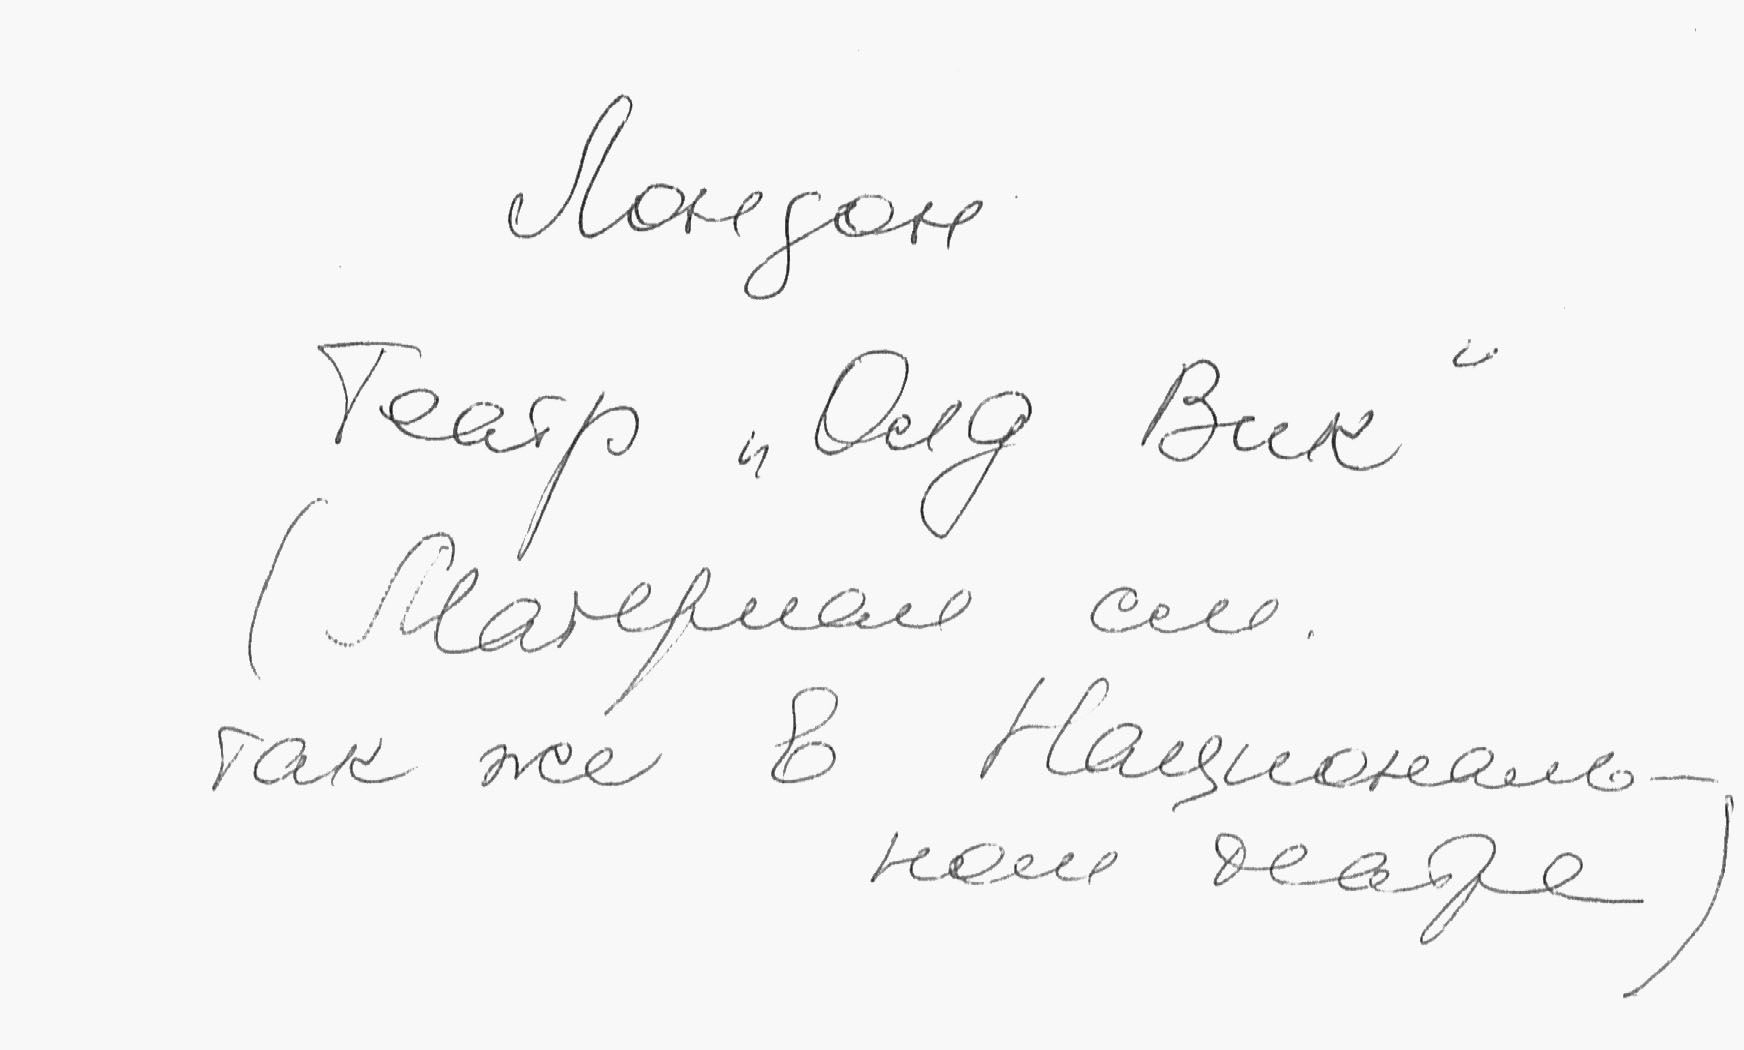 Лондон
Театр „Олд Вик“
(Материал см.
так же в Националь-
ном театре)